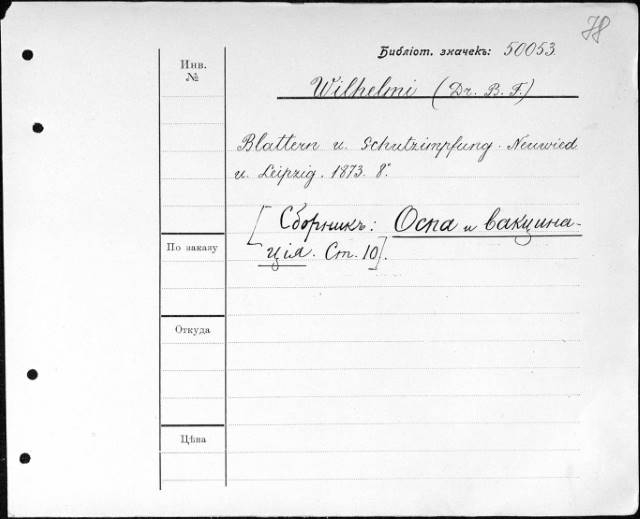 78
Библіот. значекъ: 50053.
Инв.
№
Wilhelmi (Dr. B. F.)
Blattern u. Schutzimpfung. Neuwied
u. Leipzig. 1873. 8°.
[Сборникъ: Оспа и вакцина-
ція. Ст. 10].
По заказу
Откуда
Цѣна